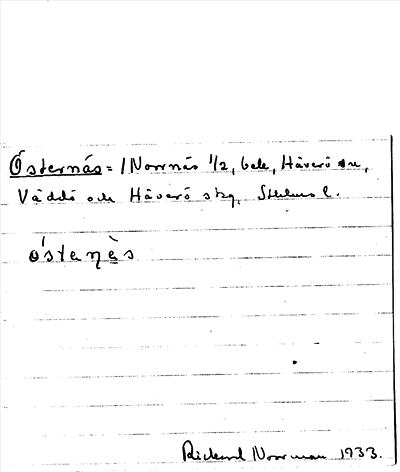 Östernäs = /Norrnäs 1/2, beb., Häverö sn,
Väddö och Häverö skg, Sthlms l.
ö́stanạ̀s
Rickard Norrman 1933.